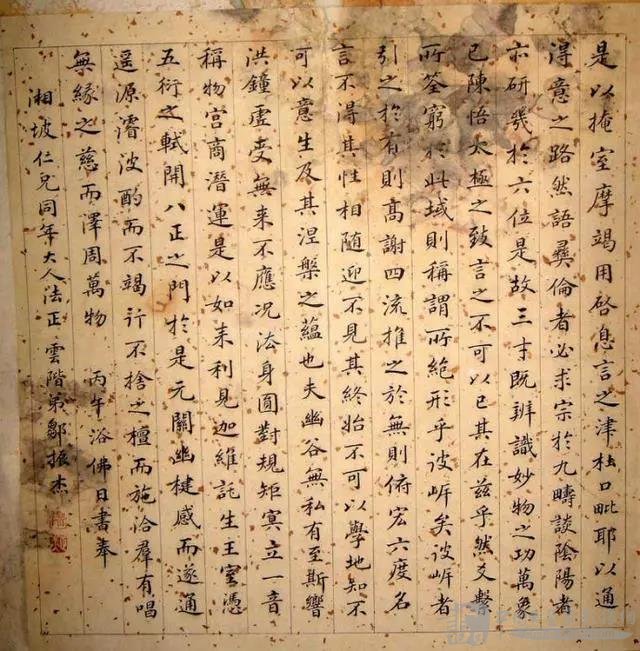 是以掩室摩竭用啓息言之津杜口毗耶以通
得意之路然語彝倫者必求宗於九疇談陰陽者
亦研幾於六位是故三才既辨識妙物之功萬象
已陳悟太極之致言之不可以已其在兹乎然爻繫
所筌窮於此域則稱謂所絕形乎彼岸矣彼岸者
引之於有則高謝四流推之於無則俯宏六度名
言不得其性相隨迎不見其終始不可以學地知不
可以意生及其涅槃之蘊也夫幽谷無私有至斯響
洪鐘虛受無来不應況法身圓對規矩冥立一音
稱物宮商潛運是以如来利見迦維託生王室憑
五衍之軾開八正之門於是元關幽楗感而遂通
遥源濬波酌而不竭行不捨之檀而施洽羣有唱
無緣之慈而澤周萬物 丙午浴佛日書奉
湘坡仁兄同年大人法正 雲階弟鄒振杰